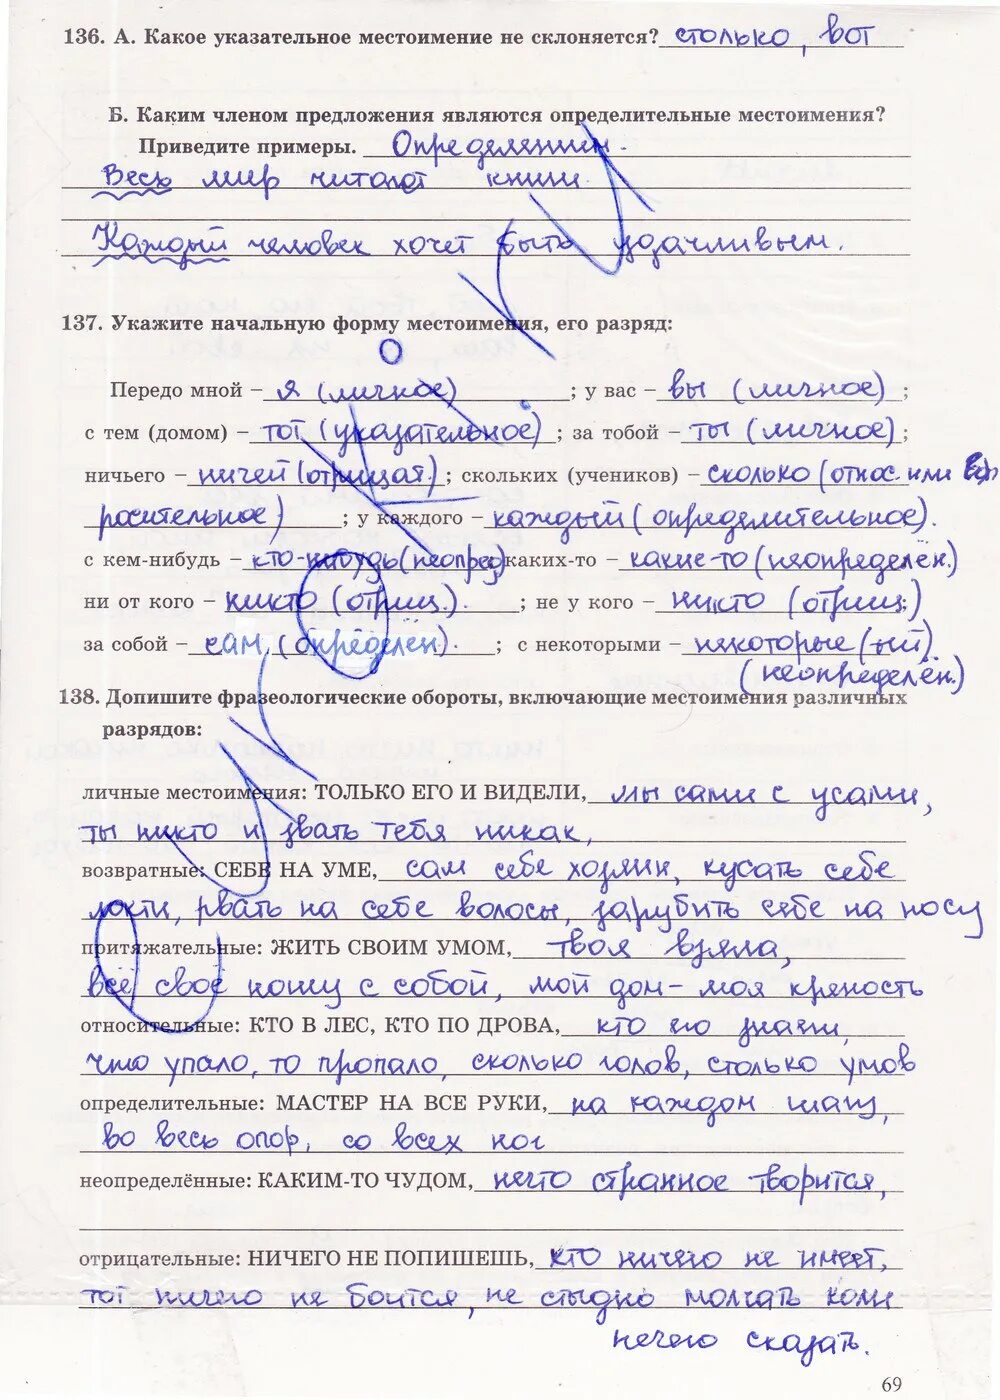 136. А. Какое указательное местоимение не склоняется? столько, вот
Б. Каким членом предложения являются определительные местоимения?
Приведите примеры. Определением.
Весь мир читает книги.
Каждый человек хочет быть удачливым.
137. Укажите начальную форму местоимения, его разряд:
Передо мной – я (личное) ; у вас – вы (личное) ;
с тем (домом) – тот (указательное) ; за тобой – ты (личное) ;
ничьего – ничей (отрицат.) ; скольких (учеников) – сколько (относ. или воп
росительное) ; у каждого – каждый (определительное).
с кем-нибудь – кто-нибудь (неопред) каких-то – какие-то (неопределён.)
ни от кого – никто (отриц.). ; не у кого – никто (отриц.)
за собой – сам, (определён). ; с некоторыми – некоторые (ый).
(неопределён.)
138. Допишите фразеологические обороты, включающие местоимения различных
разрядов:
личные местоимения: ТОЛЬКО ЕГО И ВИДЕЛИ, мы сами с усами,
ты никто и звать тебя никак,
возвратные: СЕБЕ НА УМЕ, сам себе хозяин, кусать себе
локти, рвать на себе волосы, зарубить себе на носу
притяжательные: ЖИТЬ СВОИМ УМОМ, твоя взяла,
всё своё ношу с собой, мой дом – моя крепость
относительные: КТО В ЛЕС, КТО ПО ДРОВА, кто его знает,
что упало, то пропало, сколько голов, столько умов
определительные: МАСТЕР НА ВСЕ РУКИ, на каждом шагу,
во весь опор, со всех ног
неопределённые: КАКИМ-ТО ЧУДОМ, нечто странное творится,
отрицательные: НИЧЕГО НЕ ПОПИШЕШЬ, кто ничего не имеет,
тот ничего не боится, не стыдно молчать коли
нечего сказать.
69